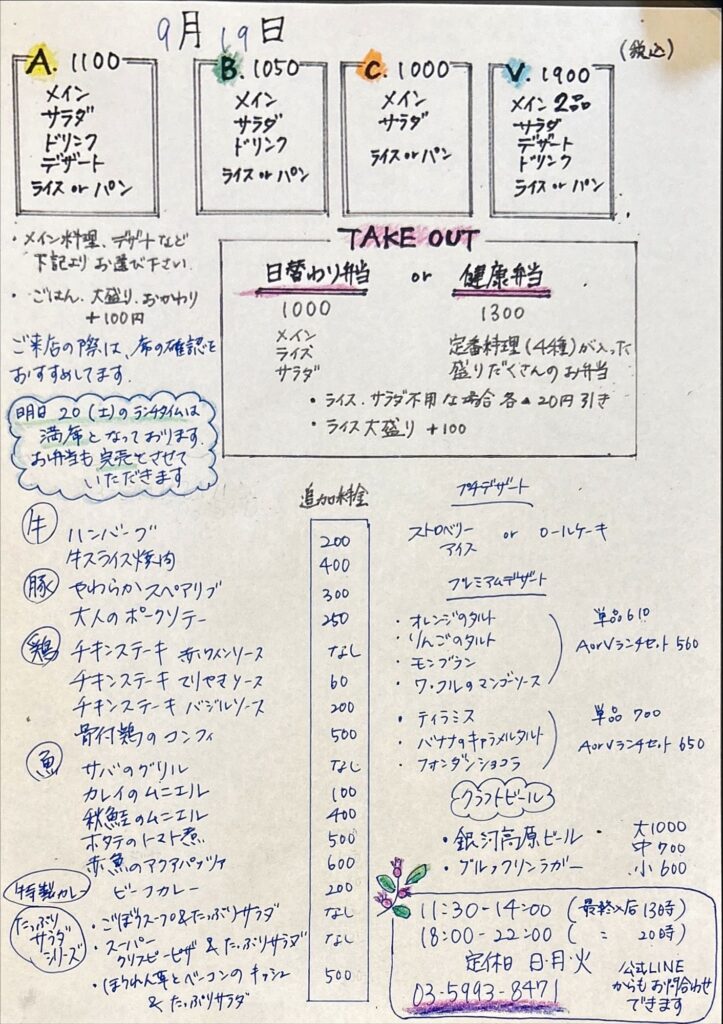 9月19日
(税込)
A. 1100
メイン
サラダ
ドリンク
デザート
ライス or パン
B. 1050
メイン
サラダ
ドリンク
ライス or パン
C. 1000
メイン
サラダ
ライス or パン
V. 1900
メイン 2品
サラダ
デザート
ドリンク
ライス or パン
・メイン料理、デザートなど
下記より お選び下さい
・ごはん、大盛り、おかわり
+100円
ご来店の際は、席の確認を
おすすめしてます。
明日 20 (土)のランチタイムは
満席となっております。
お弁当も完売とさせて
いただきます
TAKE OUT
日替わり弁当 or 健康弁当
1000
メイン
ライス
サラダ
1300
定番料理(4種)が入った
盛りだくさんのお弁当
・ライス、サラダ不用な場合 各▲20円引き
・ライス大盛り +100
追加料金
牛 ハンバーグ 200
牛スライス焼肉 400
豚 やわらかスペアリブ 300
大人のポークソテー 250
鶏 チキンステーキ 赤ワインソース なし
チキンステーキ テリヤキソース 60
チキンステーキ バジルソース 200
骨付鶏のコンフィ 500
魚 サバのグリル なし
カレイのムニエル 100
秋鮭のムニエル 400
ホタテのトマト煮 500
赤魚のアクアパッツァ 600
特製カレー ビーフカレー 200
たっぷり
サラダ
シリーズ
・ごぼうスープ&たっぷりサラダ なし
・スーパー
クリスピーピザ & たっぷりサラダ なし
・ほうれん草とベーコンのキッシュ 500
& たっぷりサラダ
プチデザート
ストロベリー
アイス or ロールケーキ
プレミアムデザート
・オレンジのタルト
・りんごのタルト
・モンブラン
・ワッフルのマンゴーソース
単品610
AorVランチセット 560
・ティラミス
・バナナのキャラメルタルト
・フォンダンショコラ
単品 700
AorVランチセット 650
クラフトビール
・銀河高原ビール
・ブルックリンラガー
大1000
中 700
小 600
11:30-14:00 (最終入店13時)
18:00-22:00 ( 〃 20時)
定休日 日・月・火
03-5993-8471
公式LINE
からもお問合わせ
できます